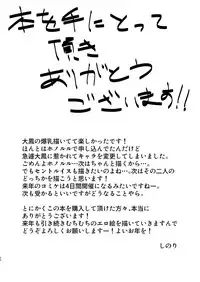 本を手にとって
頂き
ありがとう
ございます!!
大鳳の爆乳描いてて楽しかったです！
ほんとはホノルルで申し込んでたんだけど
急遽大鳳に惹かれてキャラを変更してしまいました。
ごめんよホノルル…次はちゃんと描くから…。
でもセントルイスも描きたいのよね…。次はその二人の
どっちかを描こうと思います！
来年のコミケは4日間開催になるみたいですねー。
次も受かると言いですがどうなるかな…
とにかくこの本を購入して頂けた方々、本当に
ありがとうございます！
来年も引き続きむちむちのエロ絵を描いていきますんで
どうぞよろしくお願いしますー！よいお年を！
しのり